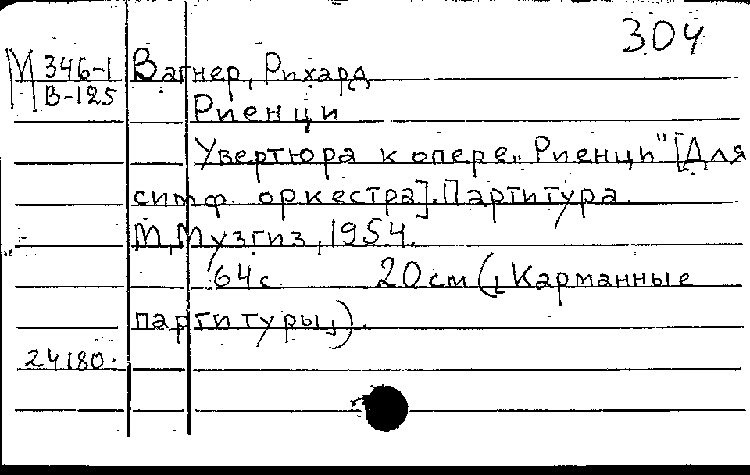 304
М 346-1 Вагнер, Рихард
В-125
Риенци
Увертюра к опере „Риенци" [Для
симф. оркестра]. Партитура.
М., Музгиз, 1954.
64 с 20 см („Карманные
партитуры").
24180.